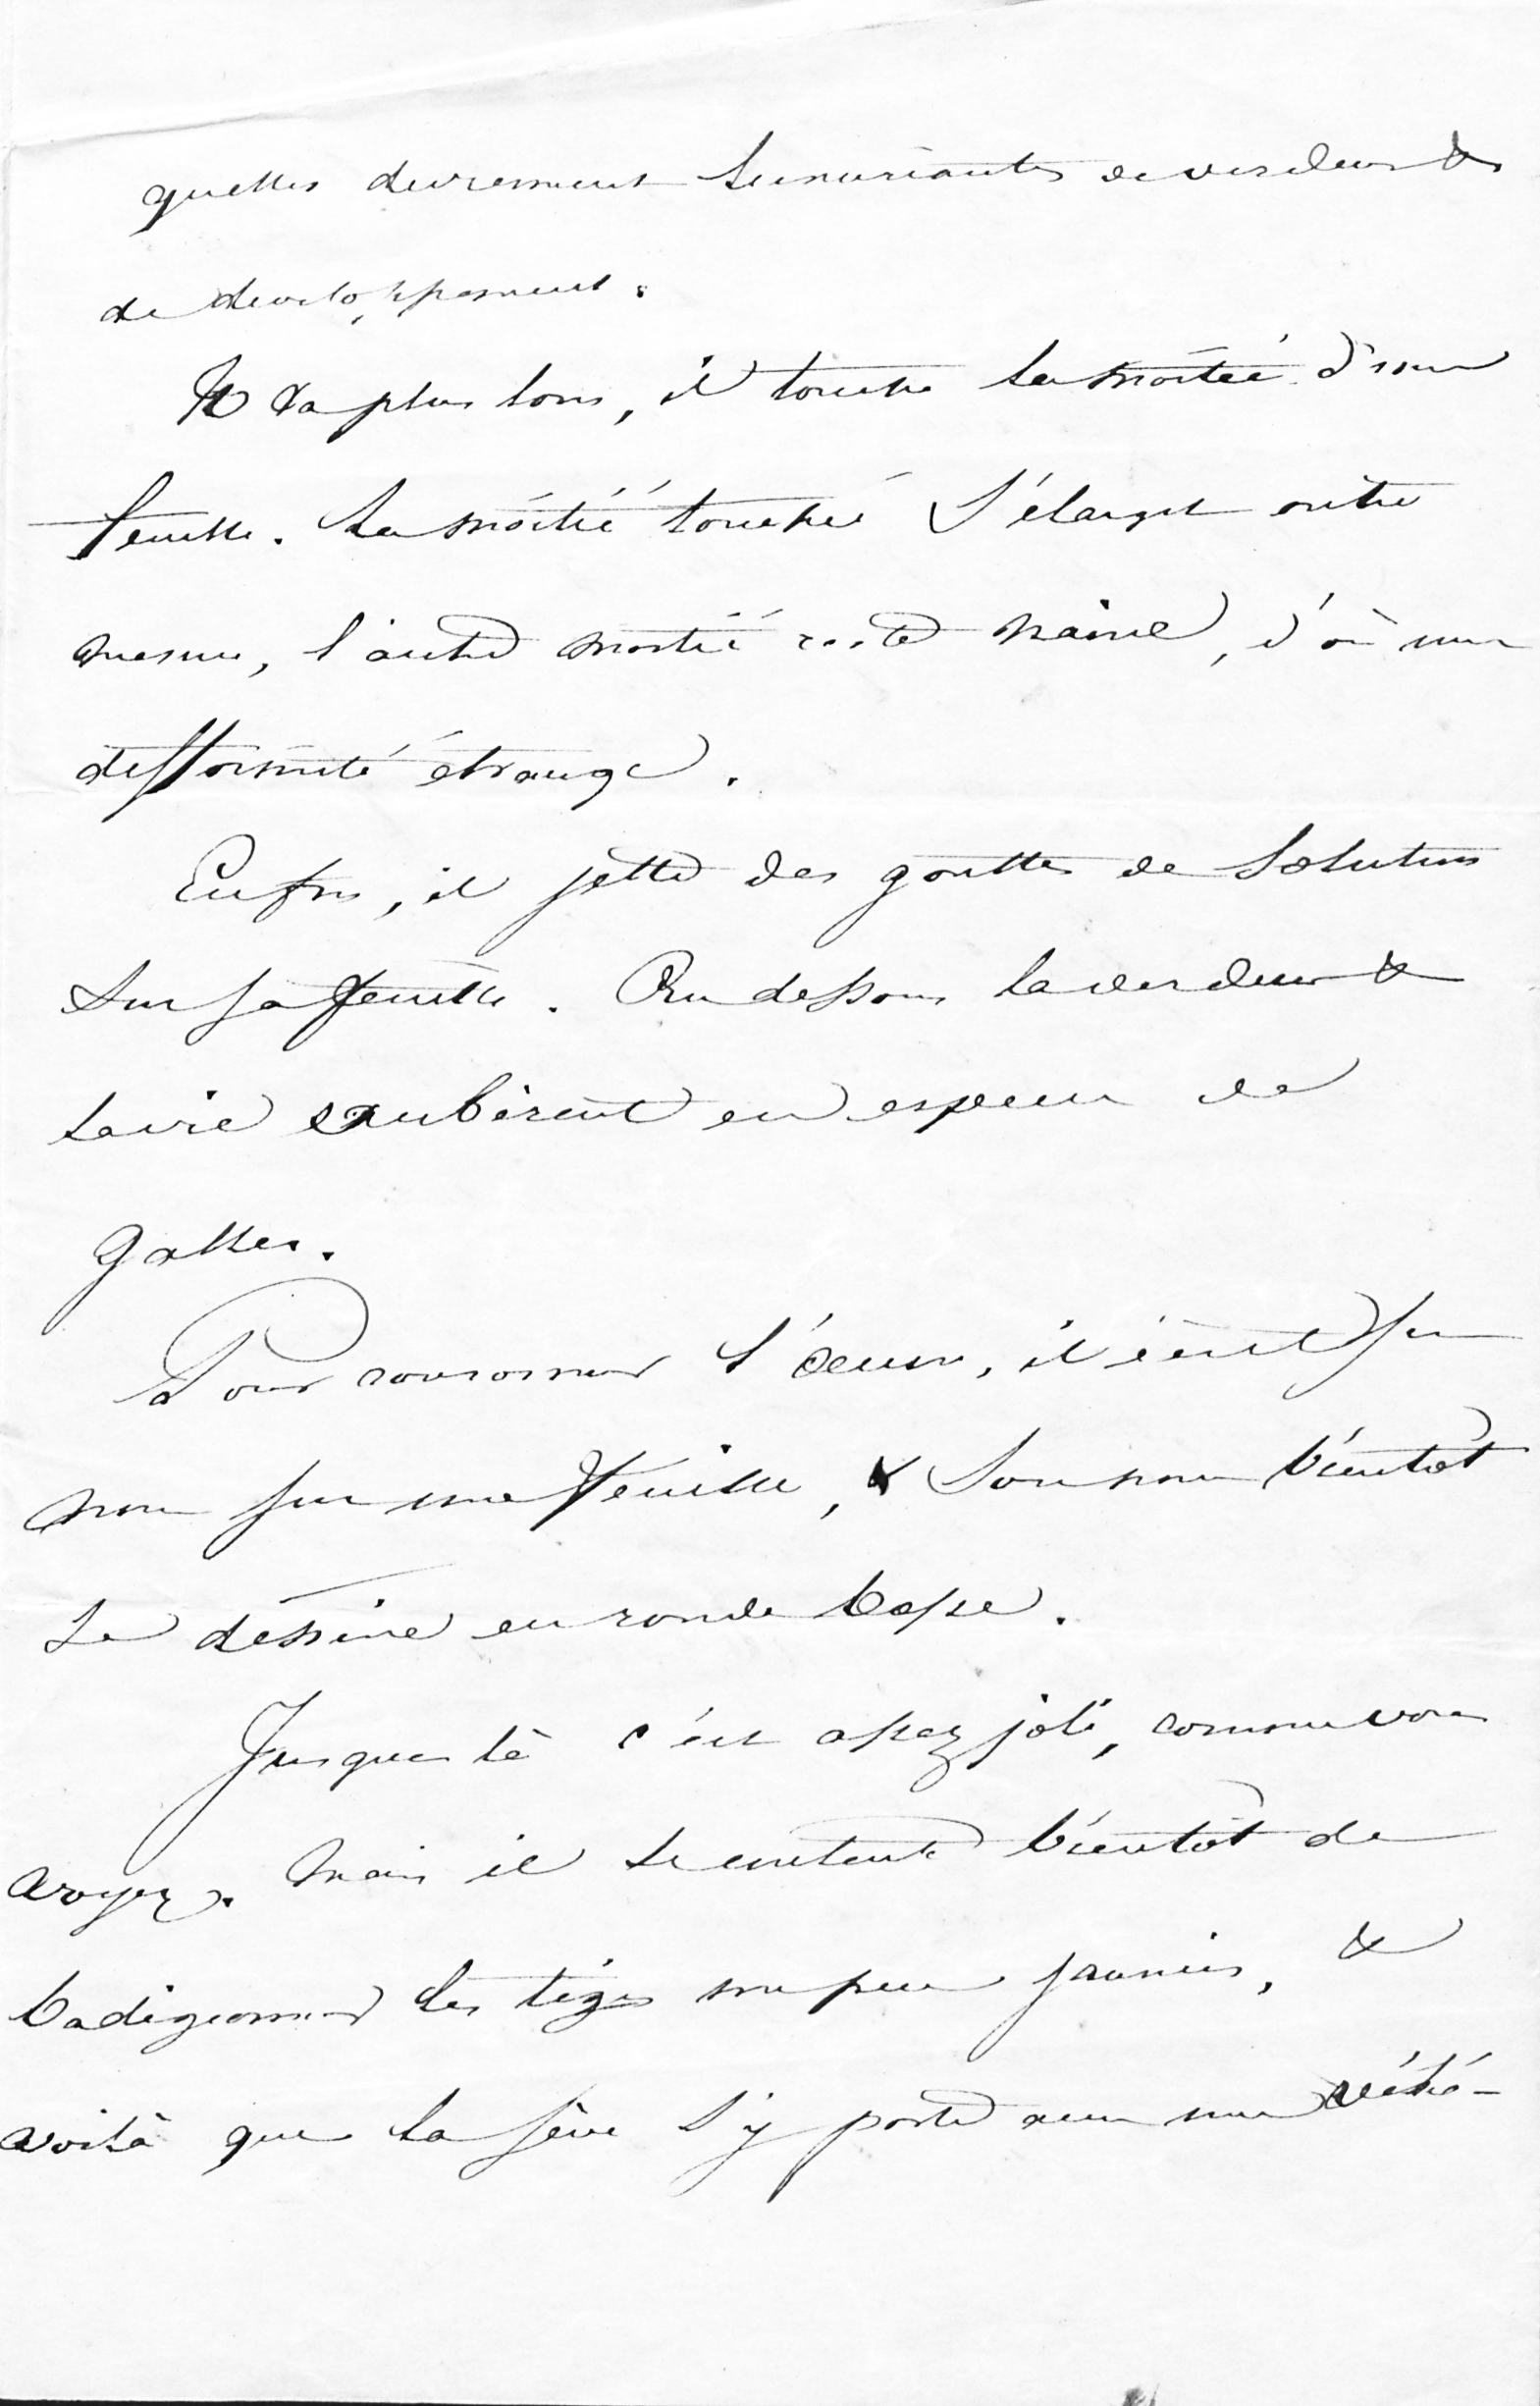 quelles deviennent luxuriantes de verdeur &
de developpement.
Il va plus loin, il touche la moitié d'une
feuille. La moitié touchée s'élargit outre
mesure, l'autre moitié reste naine, d'où une
difformité étrange.
Enfin, il jette des gouttes de solution
sur sa feuille. Au dessous la verdeur &
la vie exubèrent en espèces de
Galles.
Pour couronner l'œuvre, il écrit son
nom sur une feuille, & son nom bientôt
se dessine en ronde bosse.
Jusques là c'est assez joli, comme vous
voyez. Mais il se contente bientôt de
badigeonner les tiges un peu jaunies, &
voilà que la sève s'y porte avec une véhé-